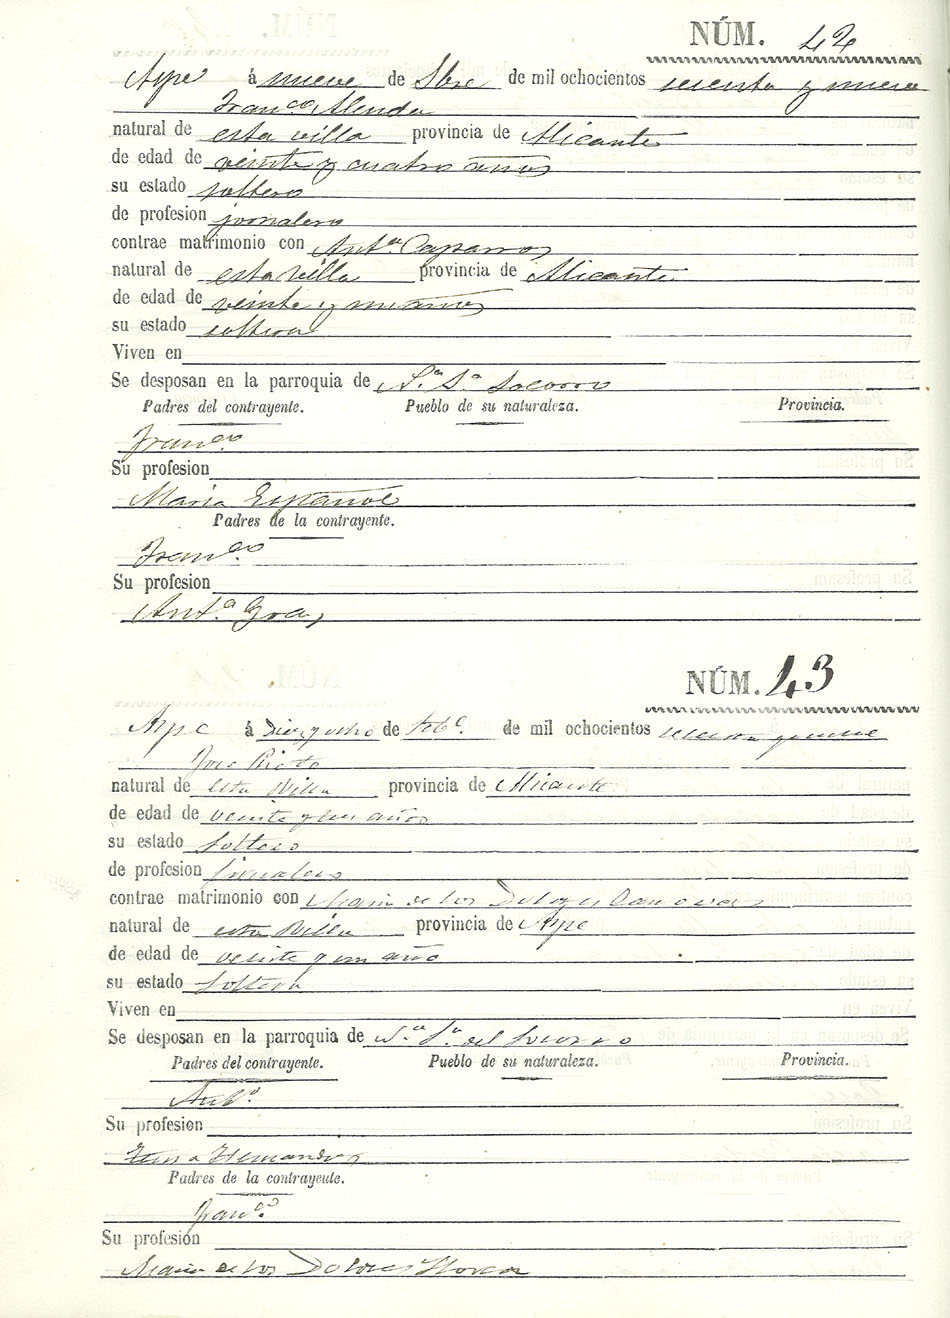 NÚM. 42
Aspe á nueve de 8bre de mil ochocientos sesenta y nueve
Franco. Alenda
natural de esta villa provincia de Alicante
de edad de veinte y cuatro años
su estado soltero
de profesion jornalero
contrae matrimonio con Anta. Caparros
natural de esta villa provincia de Alicante
de edad de veinte y años
su estado soltera
Viven en
Se desposan en la parroquia de Na. Sa. Socorro
Padres del contrayente. Pueblo de su naturaleza. Provincia.
Franco.
Su profesion
Maria Español
Padres de la contrayente.
Franco.
Su profesion
Anta.
NÚM. 43
Aspe á Diez y ocho de de mil ochocientos sesenta y nueve
Jose Prieto
natural de esta Villa provincia de Alicante
de edad de veinte y un años
su estado soltero
de profesion jornalero
contrae matrimonio con Maria de los Dolores Canovas
natural de esta Villa provincia de Aspe
de edad de veinte y un año
su estado soltera
Viven en
Se desposan en la parroquia de Na. Sa. del Socorro
Padres del contrayente. Pueblo de su naturaleza. Provincia.
Anto.
Su profesion
Hernandez
Padres de la contrayente.
Franco.
Su profesion
Maria de los Dolores